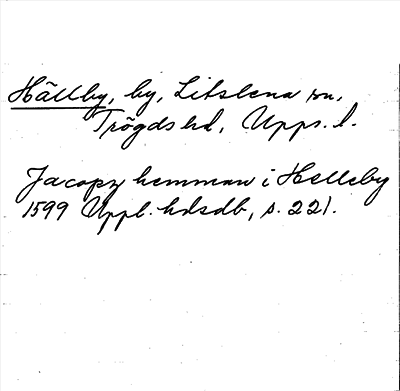 Hällby, by, Litslena sn,
Trögds hd, Upps. l.
Jacopz hemman i Helleby
1599 Uppl. hdsdb, s. 221.